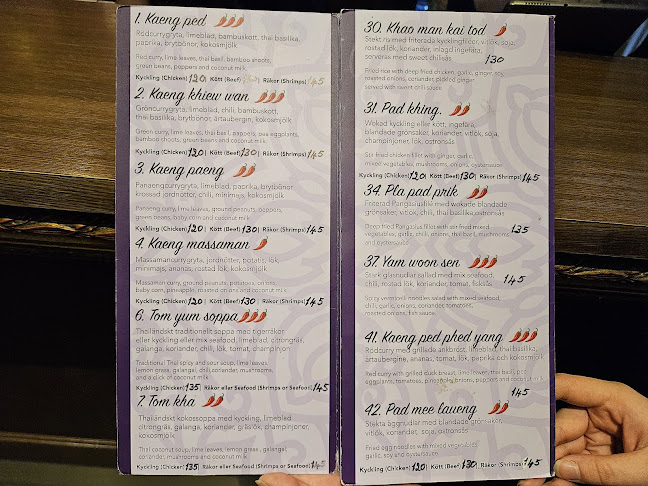 1. Kaeng ped
Rödcurrygryta, limeblad, bambuskott, thai basilika,
paprika, brytbönor, kokosmjölk
Red curry, lime leaves, thai basil, bamboo shoots,
green beans, peppers and coconut milk
Kyckling (Chicken) 120 | Kött (Beef) 130 | Räkor (Shrimps) 145
2. Kaeng khiew wan
Gröncurrygryta, limeblad, chili, bambuskott,
thai basilika, brytbönor, ärtaubergin, kokosmjölk
Green curry, lime leaves, thai basil, peppers, pea eggplants,
bamboo shoots, green beans and coconut milk
Kyckling (Chicken) 120 | Kött (Beef) 130 | Räkor (Shrimps) 145
3. Kaeng paeng
Panaengcurrygryta, limeblad, paprika, brytbönor
krossad jordnötter, chili, minimajs, kokosmjölk
Panaeng curry, lime leaves, ground peanuts, peppers,
green beans, baby corn and coconut milk
Kyckling (Chicken) 120 | Kött (Beef) 130 | Räkor (Shrimps) 145
4. Kaeng massaman
Massamancurrygryta, jordnötter, potatis, lök,
minimajs, ananas, rostad lök, kokosmjölk
Massaman curry, ground peanuts, potatoes, onions,
baby corn, pineapple, roasted onions and coconut milk
Kyckling (Chicken) 120 | Kött (Beef) 130 | Räkor (Shrimps) 145
6. Tom yum soppa
Thailändskt traditionellt soppa med tigerräkor
eller kyckling eller mix seafood, limeblad, citrongräs,
galanga, koriander, chili, lök, tomat, champinjon
Traditional Thai spicy and sour soup, lime leaves,
lemon grass, galangal, chili,coriander, mushrooms
and a click of coconut milk
Kyckling (Chicken) 135 | Räkor eller Seafood (Shrimps or Seafood) 145
7. Tom kha
Thailändskt kokossoppa med kyckling, limeblad
citrongräs, galanga, koriander, gräslök, champinjoner,
kokosmjölk
Thai coconut soup, lime leaves, lemon grass, galangal,
coriander, mushrooms and coconut milk
Kyckling (Chicken) 135 Räkor eller Seafood (Shrimps or Seafood) 145
30. Khao man kai tod
Stekt ris med friterade kycklingfiléer, vitlök, soja,
rostad lök, koriander, inlagd ingefära,
serveras med sweet chilisås
130
Fried rice with deep fried chicken, garlic, ginger, soy
roasted onions, coriander, pickled ginger
served with sweet chili sauce
31. Pad khing.
Wokad kyckling eller kött, ingefära,
blandade grönsaker, koriander, vitlök, soja,
champinjoner, lök, ostronsås
Stir fried chicken fillet with ginger, garlic,
mixed vegetables, mushrooms, onions, oystersauce
Kyckling (Chicken) 120 Kött (Beef) 130 Räkor (Shrimps) 145
34. Pla pad prik
Friterad Pangasiusfilé med wokade blandade
grönsaker, vitlök, chili, thai basilika,ostronsås
Deep fried Pangasius fillet with stir fried mixed
vegetables, garlic, chili, onions, thai basil, mushrooms
and oystersauce
135
37. Yam woon sen
Stark glasnudlar sallad med mix seafood,
chili, rostad lök, koriander, tomat, fisksås
145
Spicy vermicelli noodles salad with mixed seafood,
chili, garlic, onions, coriander, tomatoes,
roasted onions, fish sauce
41. Kaeng ped phed yang
Rödcurry med grillade ankbröst, limeblad, thai basilika,
ärtaubergine, ananas, tomat, lök, paprika och kokosmjölk
Red curry with grilled duck breast, lime leaves, thai basil, pea
eggplants, tomatoes, pineapples, onions, peppers and coconut milk
145
42. Pad mee laueng
Stekta äggnudlar med blandade grönsaker,
vitlök, koriander, soja, ostronsås
Fried egg noodles with mixed vegetables,
garlic, soy and oystersauce
Kyckling (Chicken) 120 | Kött (Beef) 130 | Räkor (Shrimps) 145